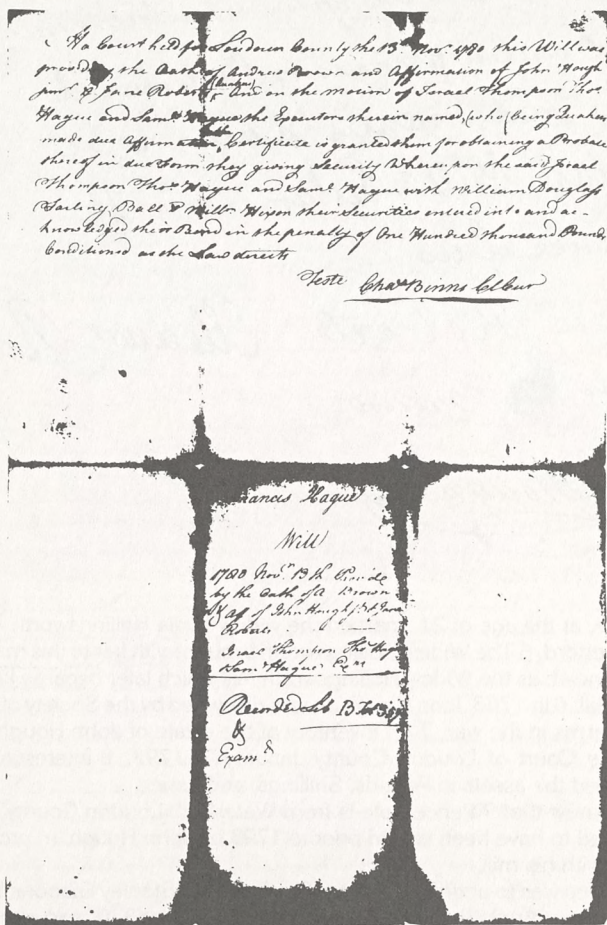 At a Court held for Loudoun County the 13th Novr 1780 this Will was
proved by the Oath of Andrew Brown and Affirmation of John Hough
junr & Jane Roberts And on the motion of Israel Thompson Thos
Hague and Saml Hague the Executors therein named, (who being Quakers
made due Affirmation, Certificate is granted them for obtaining a Probate
thereof in due form they giving Security Whereupon the said Israel
Thompson Thos Hague and Saml Hague with William Douglass
Farling Ball & Willm Hixon their Securities entered into and ac-
knowledged their Bond in the penalty of One Hundred thousand Pounds
Conditioned as the Law directs
Teste Chas Binns ClCur
Francis Hague
Will
1780 Novr 13th Proved
by the Oath of A Brown
& Aff of John Hough jr & Jane
Roberts
Israel Thompson Thos Hague
Saml Hague Exrs
Recorded Lib B
&
Examd